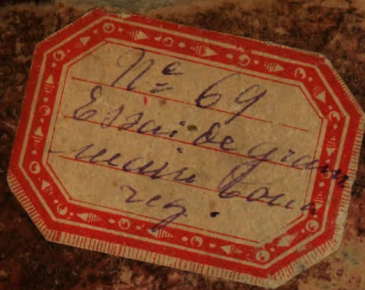 Nº 69
Essai de gram
maire
reg.